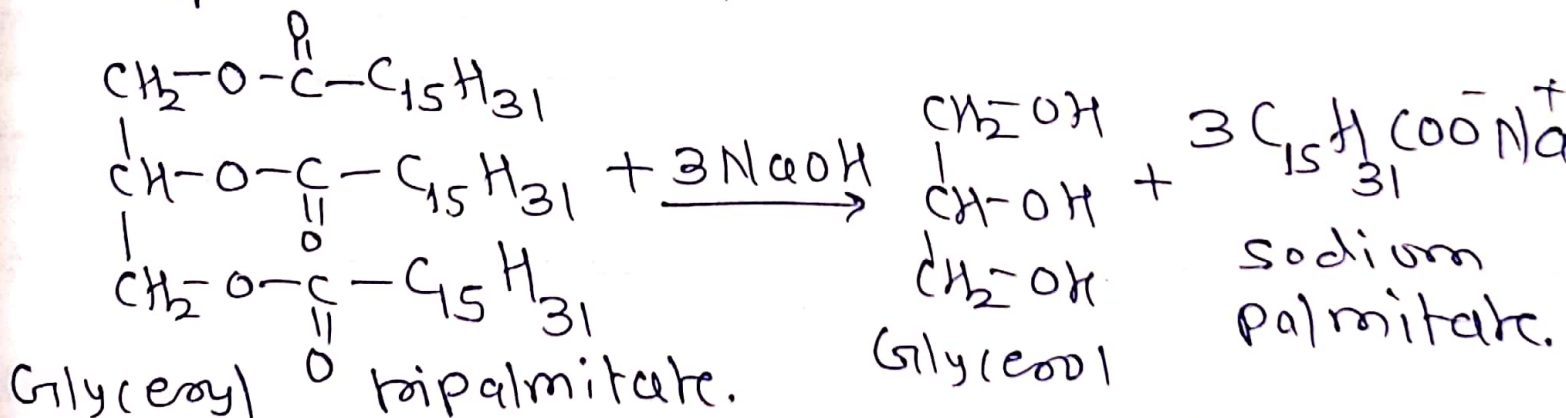 O
CH₂-O-C-C₁₅H₃₁
CH-O-C-C₁₅H₃₁ + 3NaOH →
O
CH₂-O-C-C₁₅H₃₁
O
Glyceryl tripalmitate.
CH₂-OH
CH-OH
CH₂-OH
Glycerol
+ 3C₁₅H₃₁COO⁻Na⁺
sodium
palmitate.